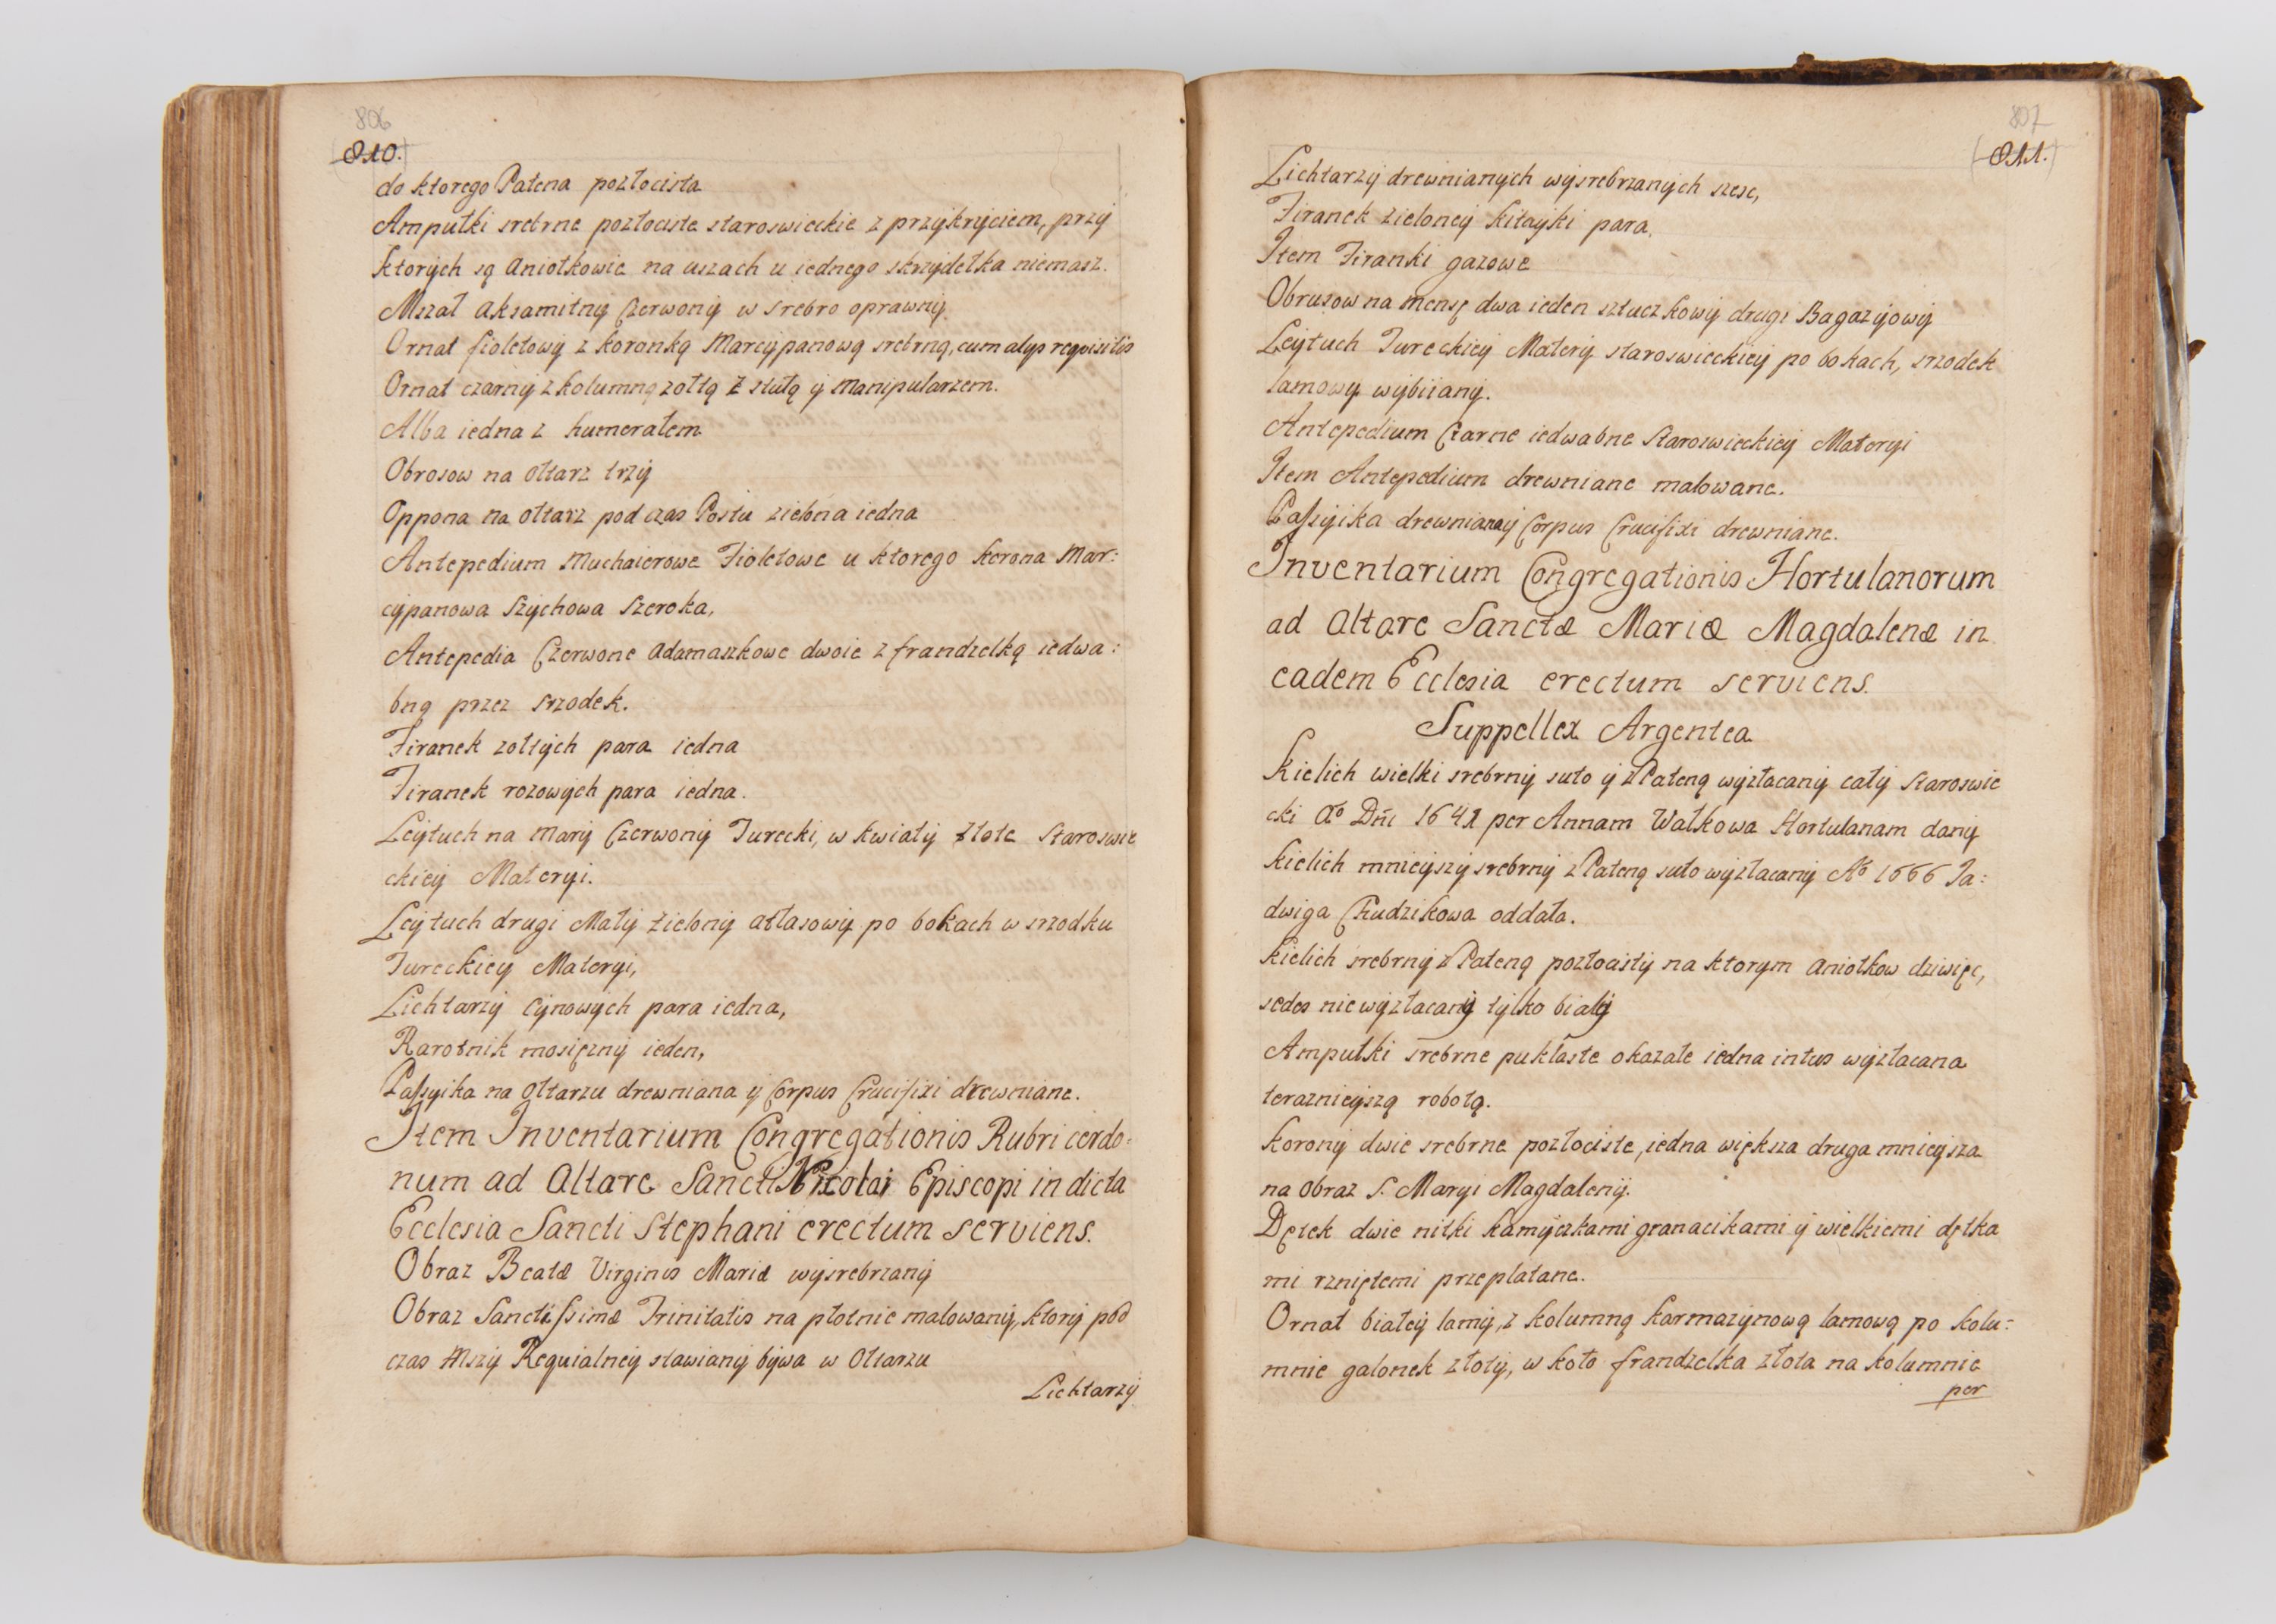 806
810.
do ktorego Patena pozłocista
Ampułki srebrne pozłociste staroswieckie z przykryciem, przy
ktorych są Aniołkowie na uszach u iednego skrzydełka niemasz.
Mszał Aksamitny Czerwony w srebro oprawny.
Ornat fioletowy z koronką Marcypanową srebrną, cum alys requisitis
Ornat czarny z kolumną zołtą z stułą y Manipularzem.
Alba iedna z humerałem
Obrosow na Ołtarz trzy
Oppona na ołtarz pod czas Postu zielona iedna
Antepedium Muchaierowe Fioletowe u ktorego korona Mar:
cypanowa Szychowa Szeroka,
Antepedia Czerwone Adamaszkowe dwoie z frandzelką iedwa:
bną przez srzodek.
Firanek zołtych para iedna
Firanek rozowych para iedna.
Leytuch na Mary Czerwony Turecki, w kwiaty złote Staroswie
ckiey Materyi.
Leytuch drugi Mały zielony atłasowy po bokach w srzodku
Tureckiey Materyi,
Lichtarzy Cynowych para iedna,
Rarotnik mosięzny ieden,
Passyika na Ołtarzu drewniana y Corpus Crucifixi drewniane.
Item Inventarium Congregationis Rubricerdo=
num ad Altare Sancti Nicolai Episcopi in dicta
Ecclesia Sancti Stephani erectum serviens.
Obraz Beatæ Virginis Mariæ wysrebrzany
Obraz Sanctissimæ Trinitatis na płotnie malowany, ktory pod
czas Mszy Requialney stawiany bywa w Ołtarzu
Lichtarzy
807
811.
Lichtarzy drewnianych wysrebrzanych szesc,
Firanek zieloney kitayki para,
Item Firanki gazowe
Obrusow na mensę dwa ieden sztuczkowy drugi Bagazyowy
Leytuch Tureckiey Matery staroswieckiey po bokach, srzodek
lamowy wybiiany.
Antepedium Czarne iedwabne Staroswieckiey Materyi
Item Antepedium drewniane malowane.
Passyika drewniana y Corpus Crucifixi drewniane.
Inventarium Congregationis Hortulanorum
ad Altare Sanctæ Mariæ Magdalenæ in
eadem Ecclesia erectum serviens.
Suppellex Argentea
Kielich wielki srebrny suto y z Pateną wyzłacany cały Staroswie
cki Aº Dñi 1641 per Annam Wałkowa Hortulanam dany
Kielich mnieyszy srebrny z Pateną suto wyzłacany Aº 1666 Ja:
dwiga Chudzikowa oddała.
Kielich srebrny z Pateną pozłocisty na ktorym Aniołkow dziwięc,
sedes nie wyzłacany tylko biały
Ampułki srebrne pukłaste okazałe iedna intus wyzłacana
teraznieyszą robotą.
Korony dwie srebrne pozłociste, iedna większa druga mnieysza
na Obraz S. Maryi Magdaleny.
Dętek dwie nitki kamyczkami granacikami y wielkiemi dętka
mi rzniętemi przeplatane.
Ornat białey lamy, z kolumną karmazynową lamową po kolu=
mnie galonek złoty, w koło frandzelka złota na kolumnie
per